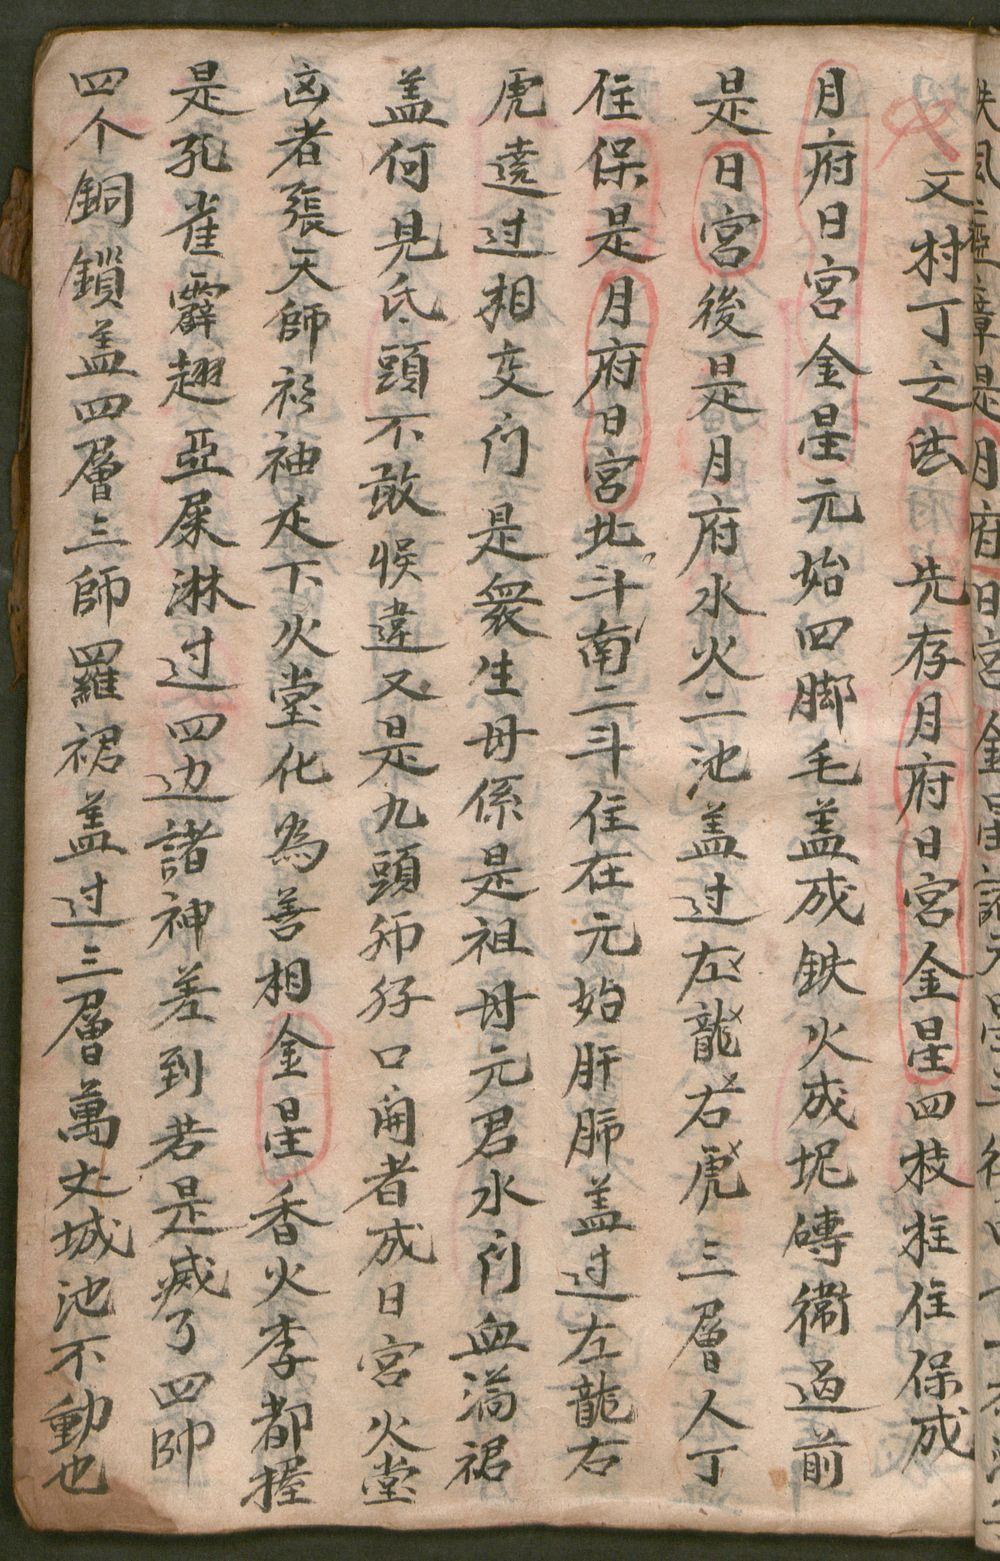 月府日宮金星
文村丁之法 先存月府日宮金星四枝柱住保成
月府日宮金星元始四脚毛盖成鉄火成坭磚衛过前
是日宮後是月府水火二池盖过左龍右虎三層人丁
住保是月府日宮北斗南二斗住在元始肝肺盖过左龍右
虎遶过相交门是衆生母係是祖母元君水门血漓裙
盖何見氏頭不敢悮違又是九頭师孖口開者成日宮火堂
凶者張天師衫袖灭下火堂化為善相金星香火李都握
是孔雀霹趐亞屎淋过四边諸神差到若是藏了四帅
四个銅鎖盖四層三師羅裙盖过三層萬丈城池不動也